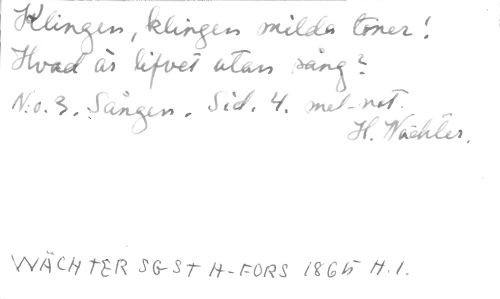 Klingen, klingen milda toner!
Hvad är lifvet utan sång?
N:o 3. Sången. Sid. 4. mel-not.
H. Wächter.
WÄCHTER SGST H-FORS 1865 H.1.